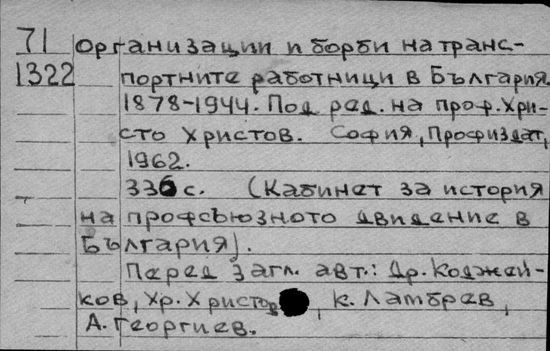 71 Организации и борби на транс-
1322 портните работници в България
1878-1944. Под ред. на проф. Хри-
сто Христов. София, Профиздат,
1962.
336 с. (Кабинет за история
на профсъюзното движение в
България).
Перед загл. авт.: Др. Коджей-
ков, Хр. Христов, К. Ламбрев,
А. Георгиев.